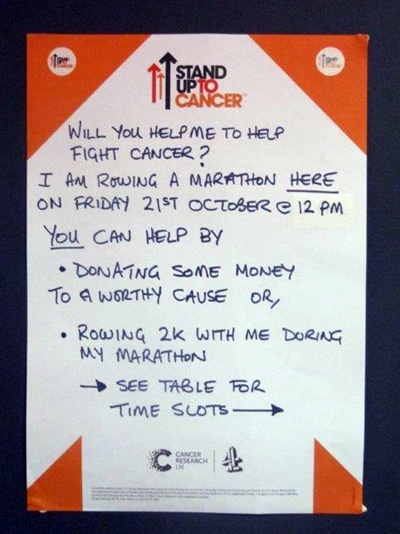 STAND
UP TO
CANCER
WILL YOU HELP ME TO HELP
FIGHT CANCER?
I AM ROWING A MARATHON HERE
ON FRIDAY 21ST OCTOBER @ 12 PM
YOU CAN HELP BY
• DONATNG SOME MONEY
TO A WORTHY CAUSE OR,
• ROWING 2K WITH ME DURING
MY MARATHON
→ SEE TABLE FOR
TIME SLOTS →
CANCER
RESEARCH
UK
4